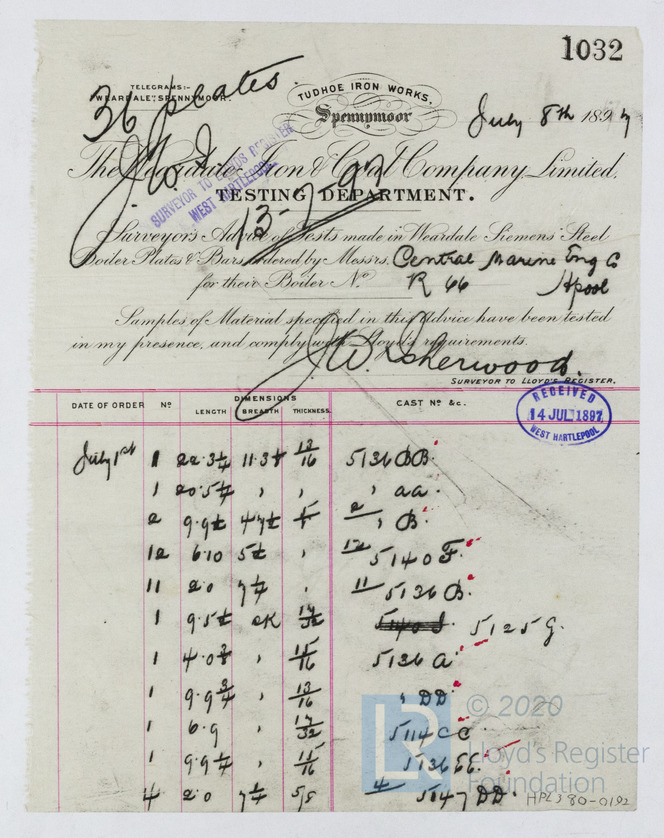 1032
36 plates.
TELEGRAMS:-
"WEARDALE", SPENNYMOOR.
TUDHOE IRON WORKS,
Spennymoor
July 8th 1897
The Weardale Iron & Coal Company, Limited.
J.W.S.
SURVEYOR TO LLOYDS REGISTER
WEST HARTLEPOOL
TESTING DEPARTMENT.
13-7-97
Surveyors Advice of Tests made in Weardale Siemens' Steel
Boiler Plates & Bars ordered by Messrs. Central Marine Eng Co
for their Boiler No. R 66 Hpool
Samples of Material specified in this Advice have been tested
in my presence, and comply with Lloyd's requirements.
J.W. Isherwood.
SURVEYOR TO LLOYD'S REGISTER.
RECEIVED
14 JUL 1897
WEST HARTLEPOOL
DATE OF ORDER No DIMENSIONS CAST No &c.
LENGTH BREADTH THICKNESS
July 1st 1 22.3¼ 11.3⅛ 13/16 5136 BB
1 20.5¼ " " " aa.
2 " B.
12 6.10 5½ " 12 5140 F.
11 2.0 7¼ " 11 5136 B.
1 9.5½ 2K 17/32 5125 G.
1 4.0⅜ " 15/16 5136 A
1 9.9¾ " 13/16 " DD
1 6.9 " 17/32 5114 CC
1 9.9¼ " 15/16 5136 EE
4 2.0 7¼ 5/8 4 5147 DD.
LR © 2020
Lloyd's Register
Foundation
HPL380-0192